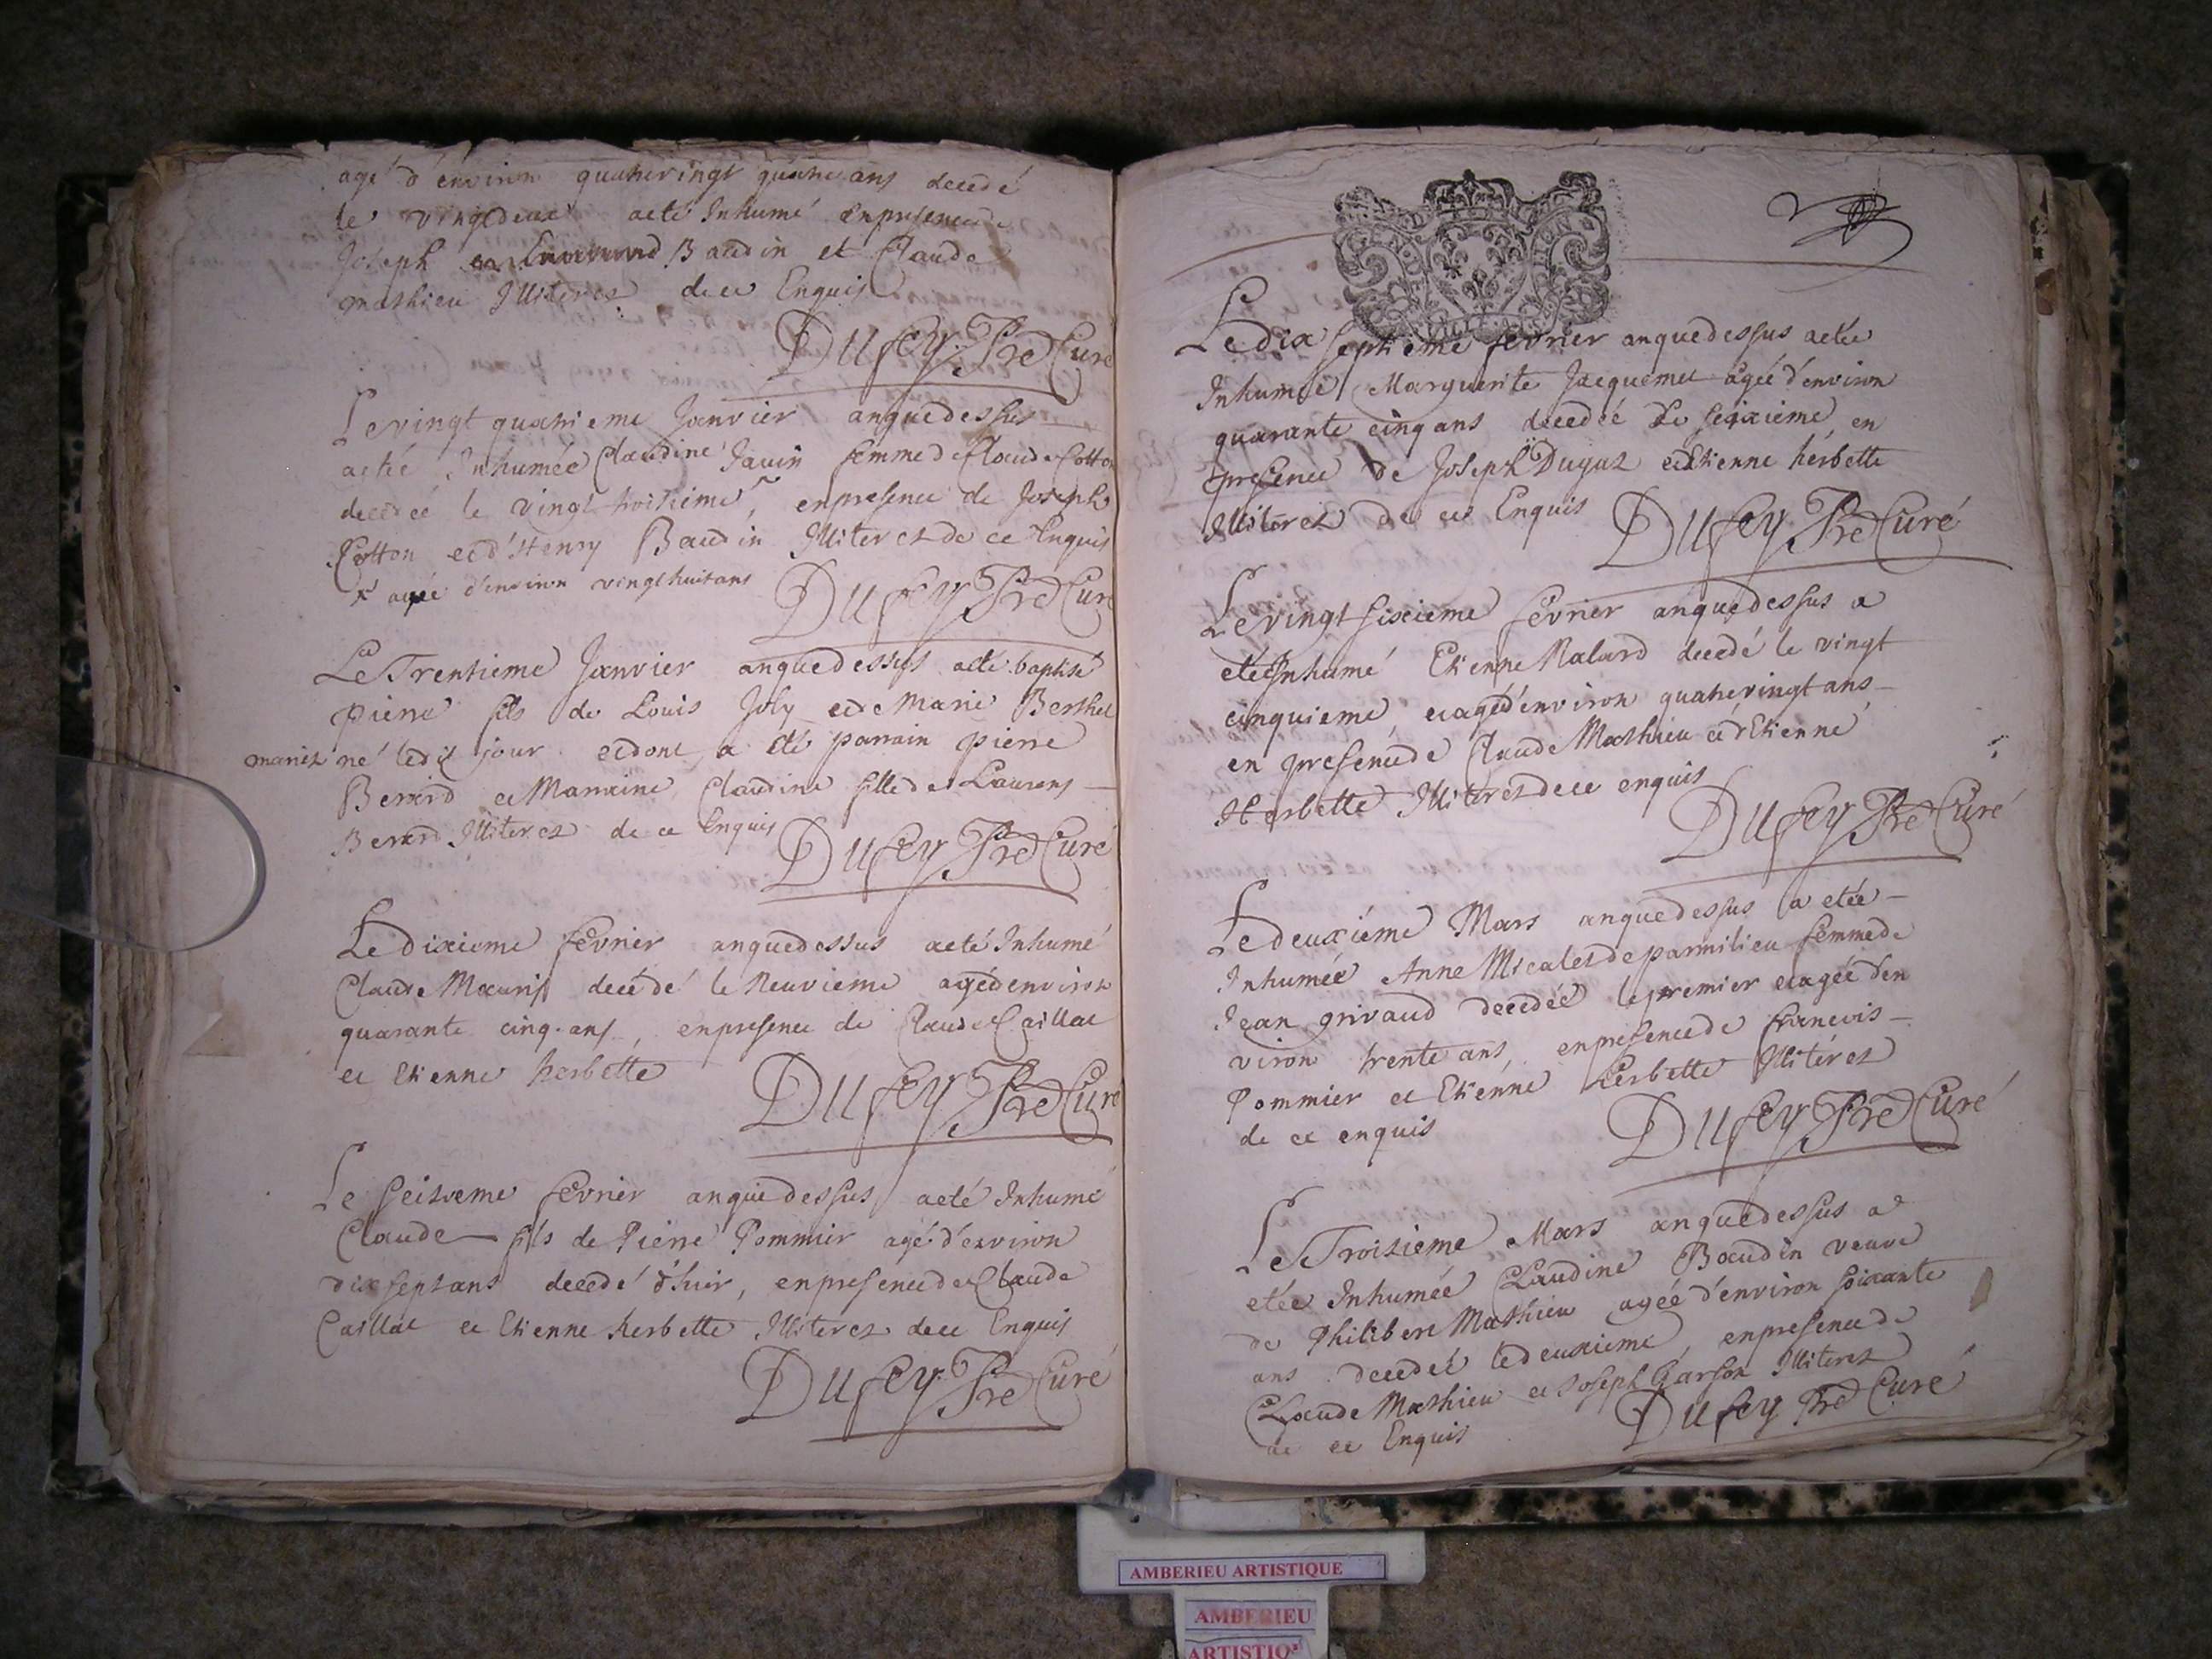 agé d'environ quatrevingt quatre ans decedé
le vingtdeux aeté Inhumé enpresencede
Joseph Baudin et Claude
mathieu Illiterez de ce Enquis
Dufey Pre Curé
Le vingt quatrieme Janvier anquedessus
aetéé Inhumée Claudine Janin femme de Claude Cotton
decedéé le vingt troisieme, enpresence de Joseph
Cotton et d'Henry Baudin Illiterez de ce Enquis
agée d'environ vingthuit ans
Dufey Pre Curé
Le Trentieme Janvier anquedessus aeté baptisé
pierre fils de Louis Joly et de Marie Berthet
mariez né ledit jour et dont a eté parrain pierre
Berard et Marraine Claudine fille de Laurens
Berard Illiterez de ce Enquis
Dufey Pre Curé
Le dixieme fevrier anquedessus aeté Inhumé
Claude Mauris decedé le Neuvieme agé denviron
quarante cinq ans, enpresence de Claude Caillat
et Etienne herbette
Dufey Pre Curé
Le seizieme fevrier anquedessus aeté Inhumé
Claude fils de Pierre Pommier agé d'environ
dix sept ans decedé d'hier, enpresence de Claude
Caillat et Etienne herbette Illiterez de ce Enquis
Dufey Pre Curé
Le dix septieme fevrier anquedessus aetée
Inhumée Marguerite Jacquemet agée d'environ
quarante cinq ans decedéé Le seixieme en
presence de Joseph Dugaz et Etienne hérbette
Illiterez de ce Enquis
Dufey Pre Curé
Le vingt sixieme fevrier anquedessus a
etée Inhumé Etienne Ralard decedé le vingt
cinquieme et agé d'environ quatrevingt ans
en presence de Claude Mathieu et d'Etienne
Herbette Illiterez de ce enquis
Dufey Pre Curé
Le deuxiéme Mars anquedessus a etée
Inhumée Anne Micalet de parmilieu femme de
Jean grivaud decedéé le premier et agée den
viron trente ans, enpresence de francois
Pommier et Etiénne herbette Illitérez
de ce enquis
Dufey Pre Curé
Le Troisieme Mars anquedessus a
etée Inhumée Claudine Baudin veuve
de Philibert Mathieu agéé d'environ soixante
ans decedéé le deuxieme enpresence de
Claude Mathieu et Joseph Garson Illiterez
de ce Enquis
Dufey Pre Curé
AMBERIEU ARTISTIQUE
AMBERIEU
ARTISTIQ